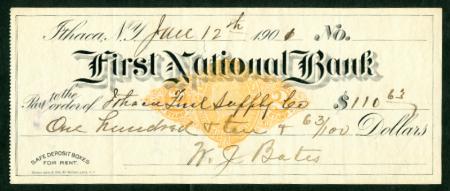 Ithaca, N.Y. June 12th 1901 No.
First National Bank
Pay to the order of Ithaca Fuel Supply Co $110 63/
One hundred & ten & 63/100 Dollars
W. J. Bates
SAFE DEPOSIT BOXES
FOR RENT.